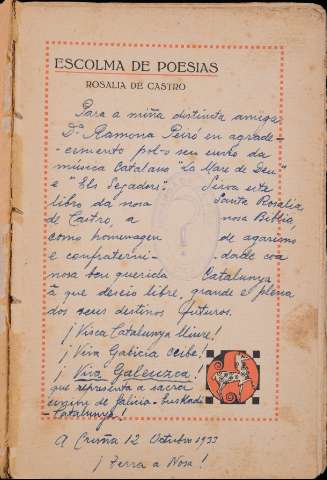 ESCOLMA DE POESIAS
ROSALIA DE CASTRO
Para a miña distinta amiga
Dª Ramona Peiró en agrade-
cimento pol-o seu envio da
música Catalana "La Mare de Deu"
e "Els Segadors". Sirva este
libro da nosa Santa Rosalia
de Castro, a nosa Biblia,
como homenagen de agarimo
e confraterni-dade coa
nosa ben querida Catalunya
á que deseio libre, grande e plena
dos seus destinos futuros.
¡Visca Catalunya lliure!
¡Viva Galicia ceibe!
¡Viva Galeuzca!
que representa a sacra
unión de Galicia-Euskadi-
Catalunya!
A Cruña 12 Octubro 1933
¡Terra a Nosa!